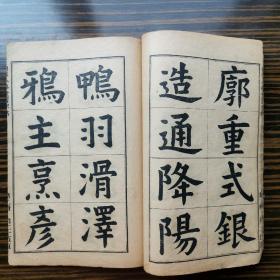 廓重式銀
造通降陽
鴨羽滑澤
鴉主烹彥